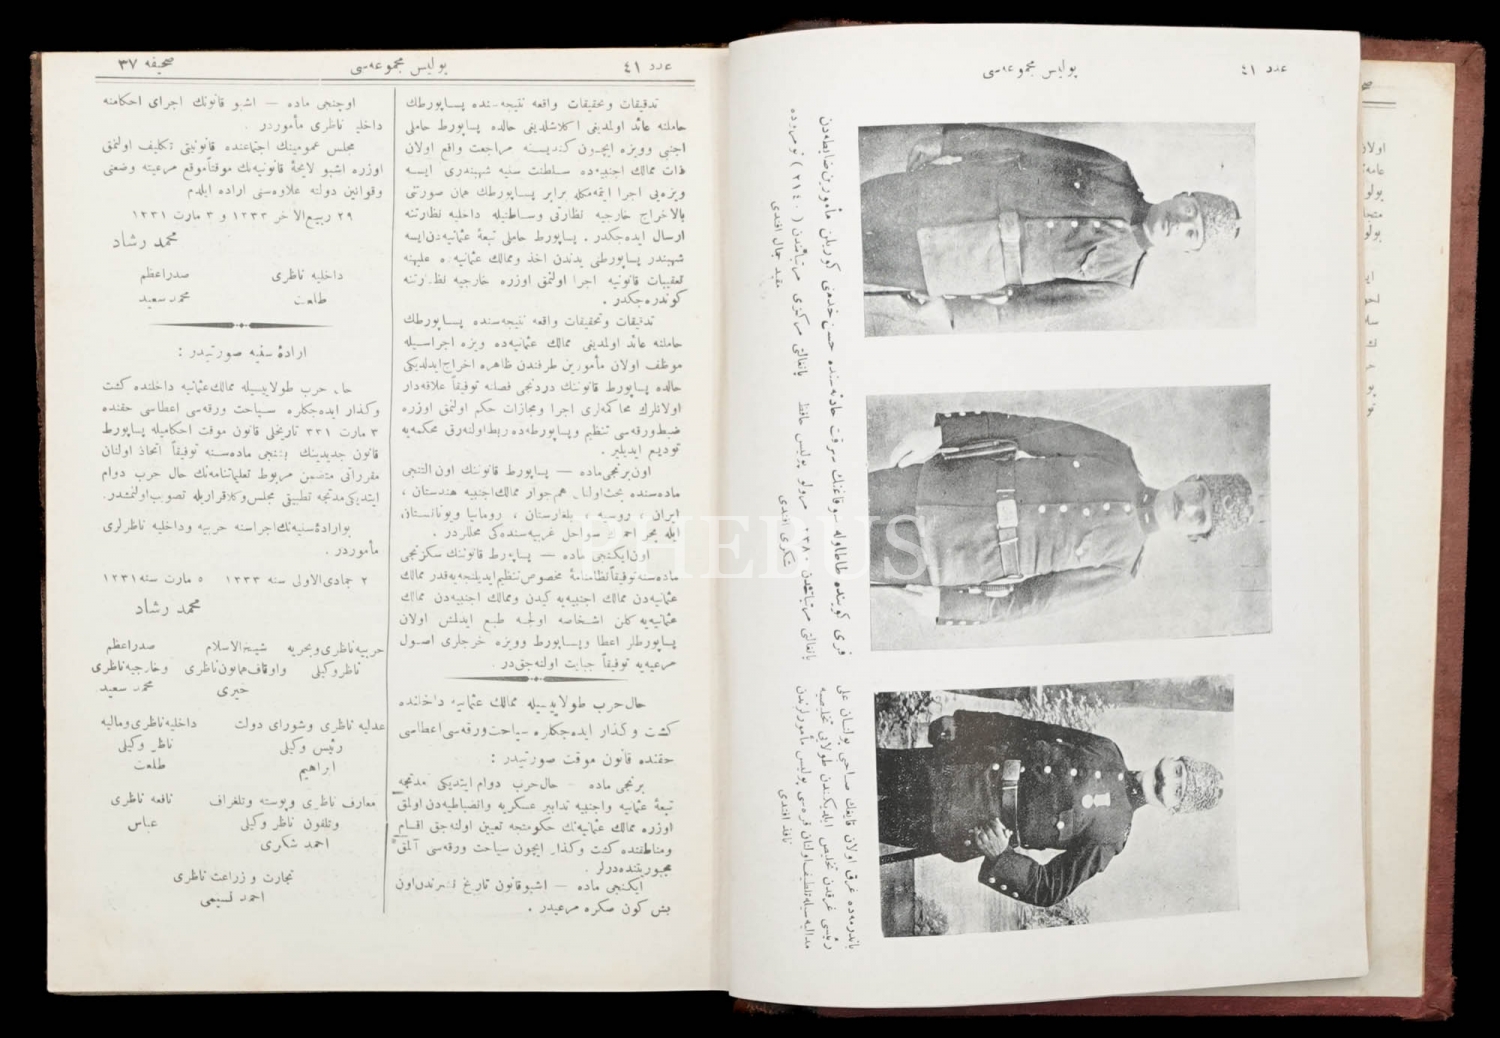 عدد ٤١
پولیس مجموعه‌سی
صحیفه ٣٧
تدقیقات و تحقیقات واقعه نتیجه‌سنده پساپورطك
حاملنه عائد اولمدیغی اكلاشلدیغی حالده پساپورط حاملی
اجنبی و ویزه ایچون كندیسنه مراجعت واقع اولان
ذات ممالك اجنبیه‌ده سلطنت سنیه شهبندری ایسه
ویزه‌یی اجرا ایتمه‌مكله برابر پساپورطك همان صورتنی
بالاخراج خارجیه نظارتی وساطتیله داخلیه نظارتنه
ارسال ایده‌جكدر . پساپورط حاملی تبعهٔ عثمانیه‌دن ایسه
شهبندر پساپورطی یدندن اخذ و ممالك عثمانیه‌ده علیهنه
تعقیبات قانونیه اجرا اولنمق اوزره خارجیه نظارتنه
كوندره‌جكدر .
تدقیقات و تحقیقات واقعه نتیجه‌سنده پساپورطك
حاملنه عائد اولمدیغی ممالك عثمانیه‌ده ویزه اجراسیله
موظف اولان مأمورین طرفندن ظاهره اخراج ایدلدیكی
حالده پساپورط قانوننك دردنجی فصلنه توفیقاً علاقه‌دار
اولانلرك محاكمه‌لری اجرا و مجازات حكم اولنمق اوزره
ضبط ورقه‌سی تنظیم و پساپورطه‌ده ربط اوله‌نرق محكمه‌یه
تودیع ایدیلیر .
اون برنجی ماده — پساپورط قانوننك اون التنجی
ماده‌سنده بحث اولنان هم‌جوار ممالك اجنبیه هندستان ،
ایران ، روسیه ، بلغارستان ، رومانیا و یونانستان
ایله بحر احمرك سواحل غربیه‌سنده‌كی محللردر .
اون ایكنجی ماده — پساپورط قانوننك سكزنجی
ماده‌سنه توفیقاً نظامنامهٔ مخصوص تنظیم ایدیلنجیه‌قدر ممالك
عثمانیه‌دن ممالك اجنبیه‌یه كیدن و ممالك اجنبیه‌دن ممالك
عثمانیه‌یه كلن اشخاصه اولجه طبع ایدلمش اولان
پساپورطلر اعطا و پساپورط و ویزه خرجلری اصول
مرعیه‌یه توفیقاً جبایت اولنه‌جقدر .
حال حرب طولاییسیله ممالك عثمانیه داخلنده
كشت و كذار ایده‌جكلره سیاحت ورقه‌سی اعطاسی
حقنده قانون موقت صورتیدر :
برنجی ماده — حال حرب دوام ایتدیكی مدتجه
تبعهٔ عثمانیه و اجنبیه تدابیر عسكریه و انضباطیه‌دن اولمق
اوزره ممالك عثمانیه‌نك حكومتجه تعیین اولنه‌جق اقسام
و مناطقنده كشت و كذار ایچون سیاحت ورقه‌سی آلمق
مجبوریتنده‌درلر .
ایكنجی ماده — اشبو قانون تاریخ نشرندن اون
بش كون صكره مرعیدر .
اوچنجی ماده — اشبو قانونك اجرای احكامنه
داخلیه ناظری مأموردر .
مجلس عمومینك اجتماعنده قانونیتی تكلیف اولنمق
اوزره اشبو لایحهٔ قانونیه‌نك موقتاً موقع مرعیته وضعنی
و قوانین دولته علاوه‌سنی اراده ایلدم
٢٩ ربیع الاخر ١٣٣٣ و ٣ مارت ١٣٣١
محمد رشاد
داخلیه ناظری صدراعظم
طلعت محمد سعید
ارادهٔ سنیه صورتیدر :
حال حرب طولاییسیله ممالك عثمانیه داخلنده كشت
و كذار ایده‌جكلره سیاحت ورقه‌سی اعطاسی حقنده
٣ مارت ٣٣١ تاریخلی قانون موقت احكامیله پساپورط
قانون جدیدینك بشنجی ماده‌سنه توفیقاً اتخاذ اولنان
مقرراتی متضمن مربوط تعلیماتنامه‌نك حال حرب دوام
ایتدیكی مدتجه تطبیقی مجلس وكلا قراریله تصویب اولنمشدر .
بو ارادهٔ سنیه‌نك اجراسنه حربیه و داخلیه ناظرلری
مأموردر .
٢ جمادی الاولی سنه ١٣٣٣ ٥ مارت سنه ١٣٣١
محمد رشاد
حربیه ناظری و بحریه شیخ الاسلام صدراعظم
ناظر وكیلی و اوقاف همایون ناظری و خارجیه ناظری
خیری محمد سعید
عدلیه ناظری و شورای دولت داخلیه ناظری و مالیه
رئیس وكیلی ناظر وكیلی
ابراهیم طلعت
معارف ناظری و پوسته و تلغراف نافعه ناظری
و تلفون ناظر وكیلی عباس
احمد شكری
تجارت و زراعت ناظری
احمد نسیمی
عدد ٤١
پولیس مجموعه‌سی
فری كوینده طاطاوله سوقاغنك سرقت حادثه‌سنده حسن خدمتی كوریلن مأمورین ضابطه‌دن
بانغالتی مرتباتندن ٢٣٨٠ نومرولو پولیس حافظ بانغالتی مركزی مرتباتندن ( ٢١٤٠ ) نومروده
شكری افندی
مقید جمال افندی
باندرمه‌ده غرق اولان قایغك صاحبی پولنان علی
رئیسی غرقدن تخلیص ایلدیكندن طولایی تخلیصیه
مدالیه‌سیله تلطیف اولنان قره‌سی پولیس مأمورلرندن
نافذ افندی
PHEBUS